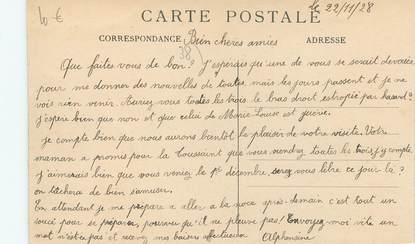 10 €
le 22/11/28
CARTE POSTALE
CORRESPONDANCE Bien chères amies ADRESSE
38
Que faites vous de bon? J'espérais qu'une de vous se serait dévouée
pour me donner des nouvelles de toutes, mais les jours passent et je ne
vois rien venir. Auriez vous toutes les trois le bras droit estropié par hasard?
J'espère bien que non et que celui de Marie-Louise est guéri.
Je compte bien que nous aurons bientôt le plaisir de votre visite. Votre
maman a promis pour la Toussaint que vous viendrez toutes les trois, j'y compte.
J'aimerais bien que vous veniez le 1er décembre, serez vous libre ce jour là?
on tâchera de bien s'amuser.
En attendant je me prépare a aller a la noce après-demain c'est tout un
souci pour se préparer, pourvu qu'il ne pleuve pas! Envoyez-moi vite un
mot n'est-ce pas et recevez mes baisers affectueux Alphonsine